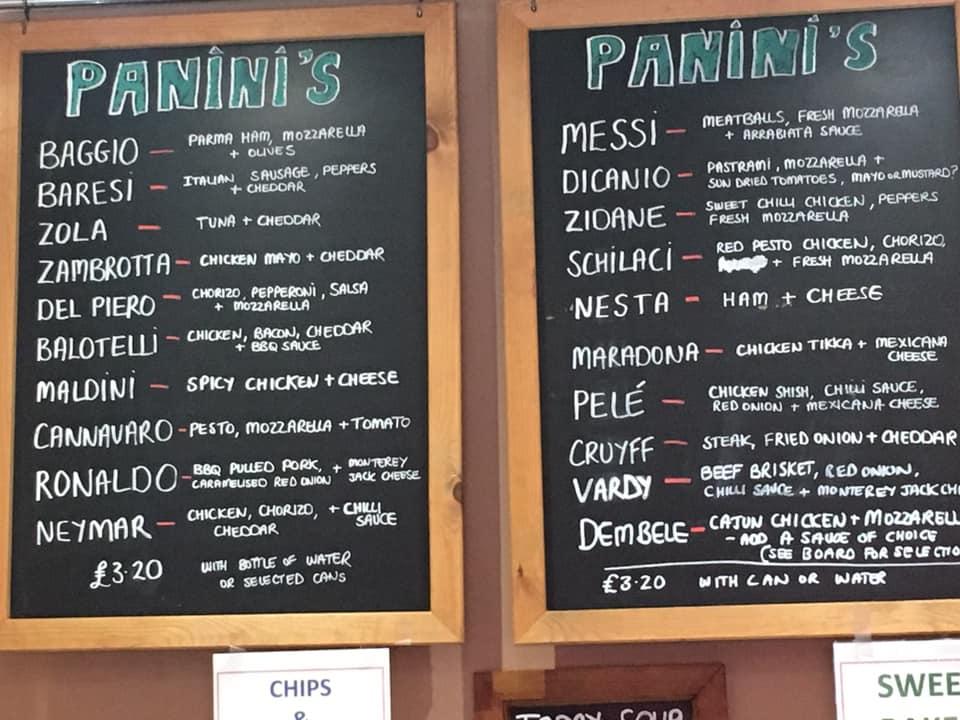 PANÎNÎ'S
BAGGIO — PARMA HAM, MOZZARELLA
+ OLIVES
BARESI — ITALIAN SAUSAGE, PEPPERS
+ CHEDDAR
ZOLA — TUNA + CHEDDAR
ZAMBROTTA — CHICKEN MAYO + CHEDDAR
DEL PIERO — CHORIZO, PEPPERONI, SALSA
+ MOZZARELLA
BALOTELLI — CHICKEN, BACON, CHEDDAR
+ BBQ SAUCE
MALDINI — SPICY CHICKEN + CHEESE
CANNAVARO - PESTO, MOZZARELLA + TOMATO
RONALDO - BBQ PULLED PORK, + MONTEREY
CARAMELISED RED ONION JACK CHEESE
NEYMAR — CHICKEN, CHORIZO, + CHILLI
CHEDDAR SAUCE
£3.20 WITH BOTTLE OF WATER
OR SELECTED CANS
PANÎNÎ'S
MESSI — MEATBALLS, FRESH MOZZARELLA
+ ARRABIATA SAUCE
DICANIO — PASTRAMI, MOZZARELLA +
SUN DRIED TOMATOES, MAYO OR MUSTARD?
ZIDANE — SWEET CHILLI CHICKEN, PEPPERS
FRESH MOZZARELLA
SCHILACI — RED PESTO CHICKEN, CHORIZO,
+ FRESH MOZZARELLA
NESTA — HAM + CHEESE
MARADONA — CHICKEN TIKKA + MEXICANA
CHEESE
PELÉ — CHICKEN SHISH, CHILLI SAUCE,
RED ONION + MEXICANA CHEESE
CRUYFF — STEAK, FRIED ONION + CHEDDAR
VARDY — BEEF BRISKET, RED ONION,
CHILLI SAUCE + MONTEREY JACK CH
DEMBELE — CAJUN CHICKEN + MOZZARELL
- ADD A SAUCE OF CHOICE
(SEE BOARD FOR SELECTIO
£3.20 WITH CAN OR WATER
CHIPS
&
TODAY SOUP
SWEE